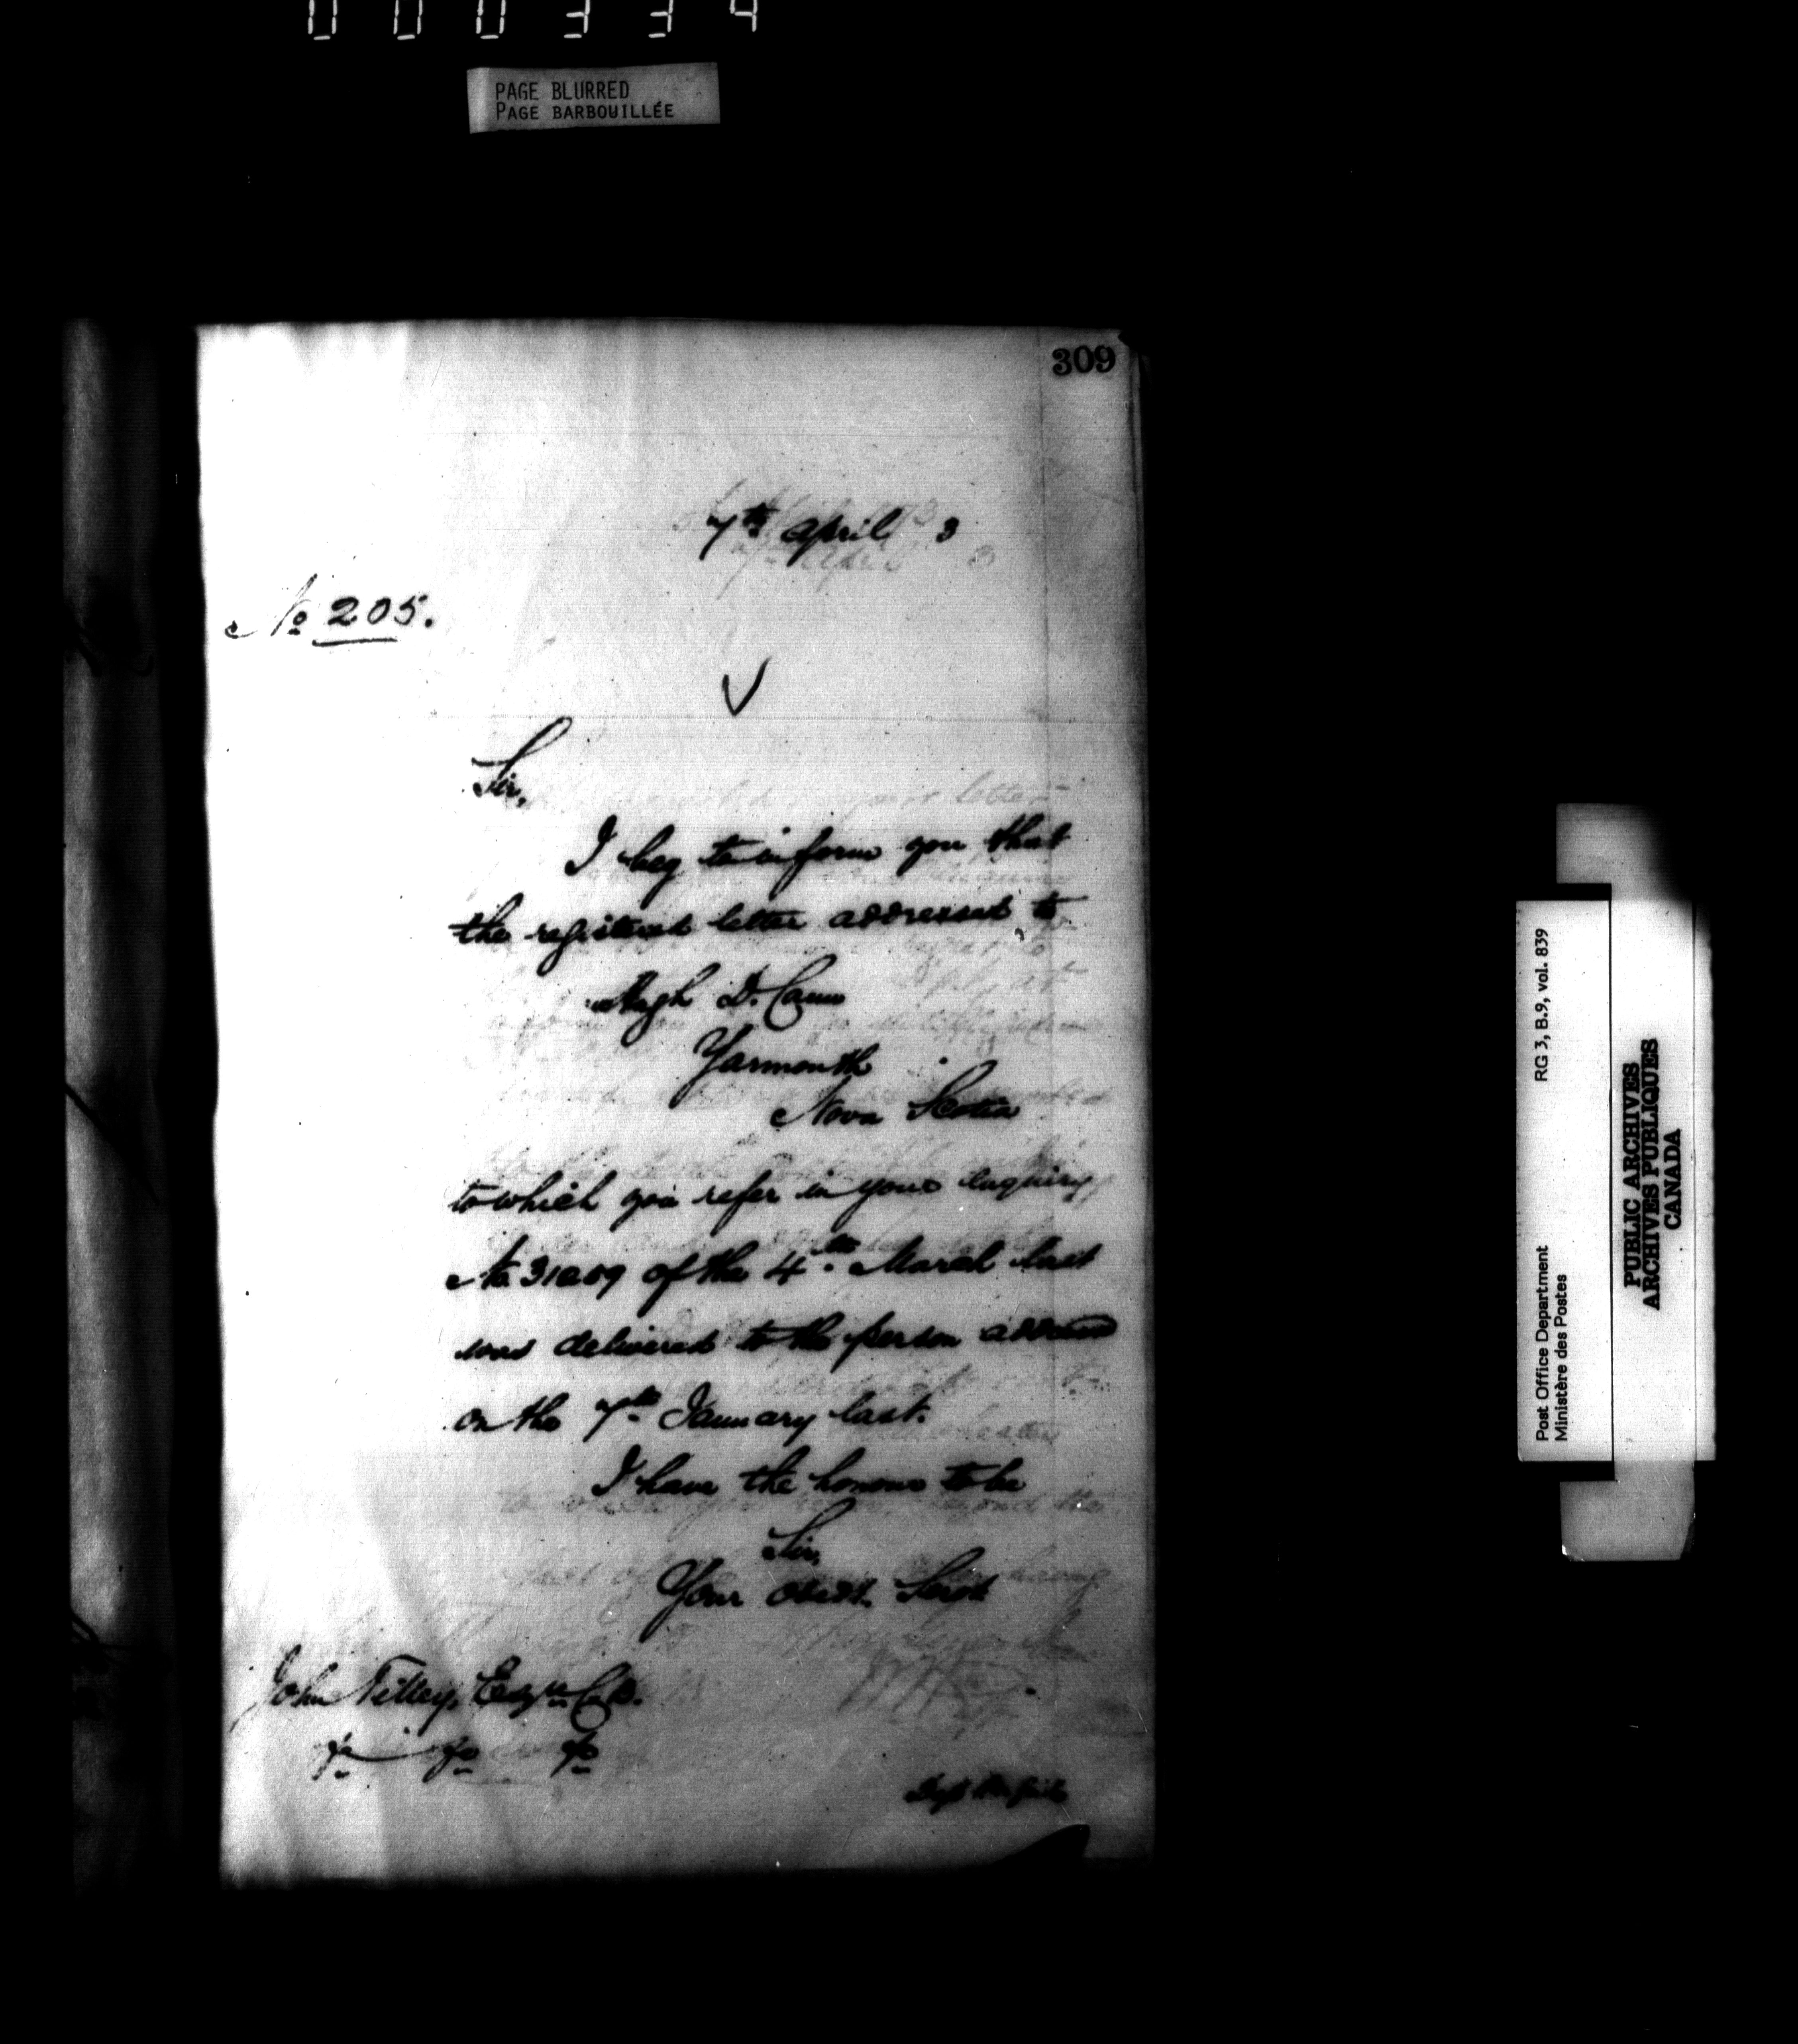 000334
PAGE BLURRED
PAGE BARBOUILLÉE
309
7th April 3
No 205.
Sir,
I beg to inform you that
the registered letter addressed to
Hugh D. Cann
Yarmouth
Nova Scotia
to which you refer in your Enquiry
No 31259 of the 4th March last
was delivered to the person address
on the 7th January last.
I have the honour to be
Sir,
Your Obedt. Servt
John Tilley, Esqre C.B.
&c &c &c
Post Office Department RG 3, B.9, vol. 839
Ministère des Postes
PUBLIC ARCHIVES
ARCHIVES PUBLIQUES
CANADA